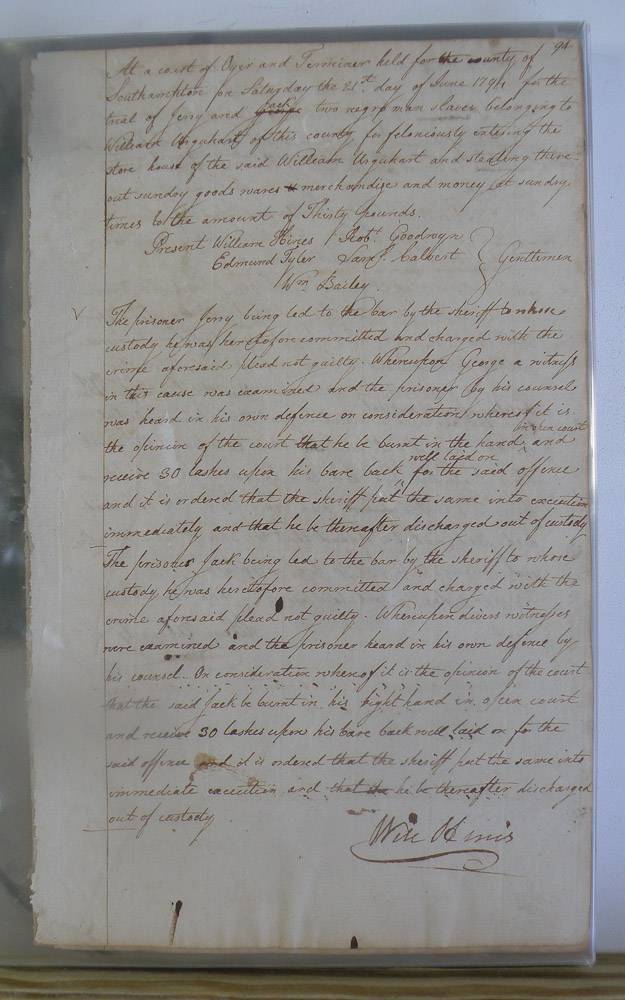 94
At a court of Oyer and Terminer held for the county of
Southampton on Saturday the 21st day of June 1794 for the
Jack
trial of Jerry and George two negro man slaves belonging to
William Urquhart of this county for feloniously entering the
store house of the said William Urquhart and stealing there-
out sundry goods wares & merchandizes and money at sundry
times to the amount of Thirty Pounds.
Present William Hines Robt. Goodwyn
Edmund Tyler Saml. Calvert Gentlemen
Wm Bailey
The prisoner Jerry being led to the bar by the sheriff to whose
custody he was heretofore committed and charged with the
crime aforesaid plead not guilty. Whereupon George a witness
in this cause was examined and the prisoner by his counsel
was heard in his own defence on consideration whereof it is
in open court
the opinion of the court that he be burnt in the hand and
well laid on
receive 30 lashes upon his bare back for the said offence
and it is ordered that the sheriff put the same into execution
immediately and that he be thereafter discharged out of custody
The prisoner Jack being led to the bar by the sheriff to whose
custody he was heretofore committed and charged with the
crime aforesaid plead not guilty. Whereupon divers witnesses
were examined and the prisoner heard in his own defence by
his counsel. On consideration whereof it is the opinion of the court
that the said Jack be burnt in his right hand in open court
and receive 30 lashes upon his bare back well laid on for the
said offence and it is ordered that the sheriff put the same into
immediate execution and that he be thereafter discharged
out of custody
Will Hines